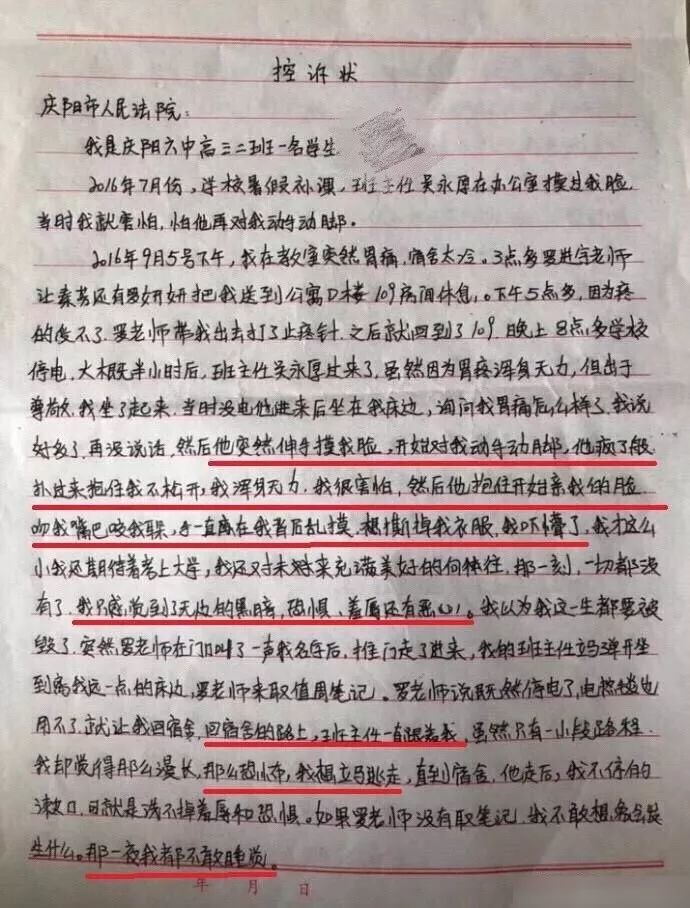 控诉状
庆阳市人民法院:
我是庆阳六中高三二班一名学生
2016年7月份,学校暑假补课,班主任吴永厚在办公室摸过我脸
当时我就害怕,怕他再对我动手动脚。
2016年9月5号下午,我在教室突然胃痛,宿舍太冷。3点多罗进宇老师
让素芳还有罗妍妍把我送到公寓D楼109房间休息,。下午5点多,因为疼
的受不了.罗老师带我出去打了止疼针.之后就回到了109.晚上8点多学校
停电,大概半小时后,班主任吴永厚过来了,虽然因为胃疼浑身无力,但出于
尊敬.我坐了起来.当时没电他进来后坐在我床边,询问我胃痛怎么样了.我说
好多了.再没说话,然后他突然伸手摸我脸,开始对我动手动脚,他疯了般
扑过来抱住我不松开,我浑身无力.我很害怕,然后他抱住开始亲我的脸
吻我嘴巴咬我耳朵,手一直在我背后乱摸.想撕掉我衣服,我吓懵了.我才这么
小我还期待着考上大学,我还对未对来充满美好的向往,那一刻,一切都没
有了.我只感觉到了无边的黑暗,恐惧、羞辱还有恶心!。我以为我这一生都要被
毁了.突然罗老师在门口叫了一声我名字后,推门走了进来,我的班主任立马弹开坐
到离我远一点的床边,罗老师来取值周笔记。罗老师说既然停电了,电热毯也
用不了.就让我回宿舍,回宿舍的路上,班主任一直跟着我,虽然只有一小段路程.
我却觉得那么漫长,那么恐怖,我想立马逃走,直到宿舍,他走后,我不停的
漱口,可就是洗不掉羞辱和恐惧。如果罗老师没有取笔记,我不敢想象会发
生什么。那一夜我都不敢睡觉。
年 月 日